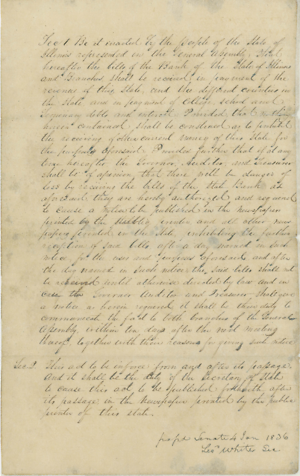 Sec 1 Be it enacted by the people of the State of
Illinois represented in the General Assembly That
hereafter the bills of the Bank of the State of Illinois
and Branches shall be received in payment of the
revenue of this State, and the different counties in
the State, and in payment of College, school and
Seminary debts and interest. Provided, that nothing
herein contained shall be construed as to prohibit
the receiving of other current money of this State for
the purposes aforesaid. Provided further that if at any
time hereafter the Governor, Auditor and Treasurer
shall be of opinion, that there will be danger of
loss by receiving the bills of the State Bank as
aforesaid they are hereby authorized and required
to cause to be published in the newspaper
printed by the public printer and all other news
papers printed in the State, prohibiting the further
reception of said bills after a day named in such
notice for the uses and purposes aforesaid and after
the day named in such notice the said bills shall not
be received until otherwise directed by law and in
case the Governor Auditor and Treasurer shall give
a notice as herein required it shall be their duty to
communicate the fact to both branches of the General
Assembly within ten days after the next meeting
thereof together with their reasons for giving such notice
Sec 2 This act to be in force from and after its passage
And it shall be the duty of the Secretary of State
to cause this act to be published forthwith after
its passage in the Newspaper printed by the public
printer of this state.
Senate Jan 1836
Leo White Sec